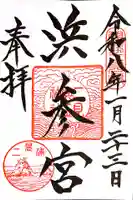 令和八年一月二十三日
浜参宮
奉拝
二見浦